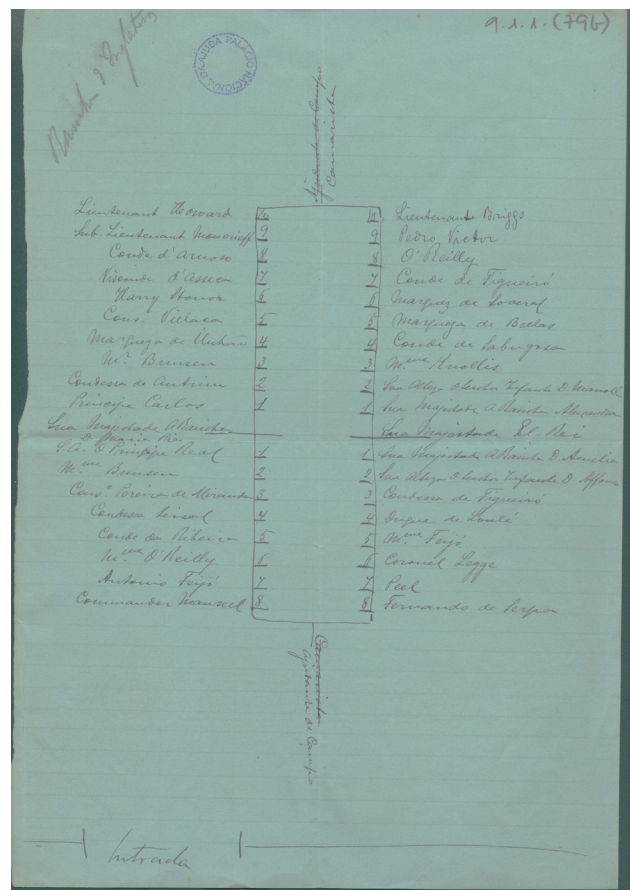 9.1.1. (796)
Rainha d'Inglaterra
PALACIO NACIONAL DA AJUDA
Ajudante de Campo
Camarista
Lieutenant Howard 10
Sub Lieutenant Moncrieff 9
Conde d'Arnoso 8
Visconde d'Asseca 7
Harry Stonor 6
Cons.º Villaça 5
Marqueza de Unhão 4
Mr. Bunsen 3
Condessa de Antrim 2
Principe Carlos 1
Sua Magestade A Rainha
D. Maria Pia
S. A. O Principe Real 1
Mme Bunsen 2
Cons.º Pereira de Miranda 3
Condessa Seisal 4
Conde da Ribeira 5
Mme O'Reilly 6
Antonio Feijó 7
Commander Mansell 8
10 Lieutenant Briggs
9 Pedro Victor
8 O'Reilly
7 Conde de Figueiró
6 Marquez de Soveral
5 Marqueza de Bellas
4 Conde de Sabugosa
3 Mme Knollis
2 Sua Alteza O Senhor Infante D. Manuel
1 Sua Magestade A Rainha Alexandra
Sua Magestade El-Rei
1 Sua Magestade A Rainha D. Amelia
2 Sua Alteza O Senhor Infante D. Affonso
3 Condessa de Figueiró
4 Duque de Loulé
5 Mme Feijó
6 Coronel Legge
7 Peel
8 Fernando de Serpa
Camarista
Ajudante de Campo
Intrada